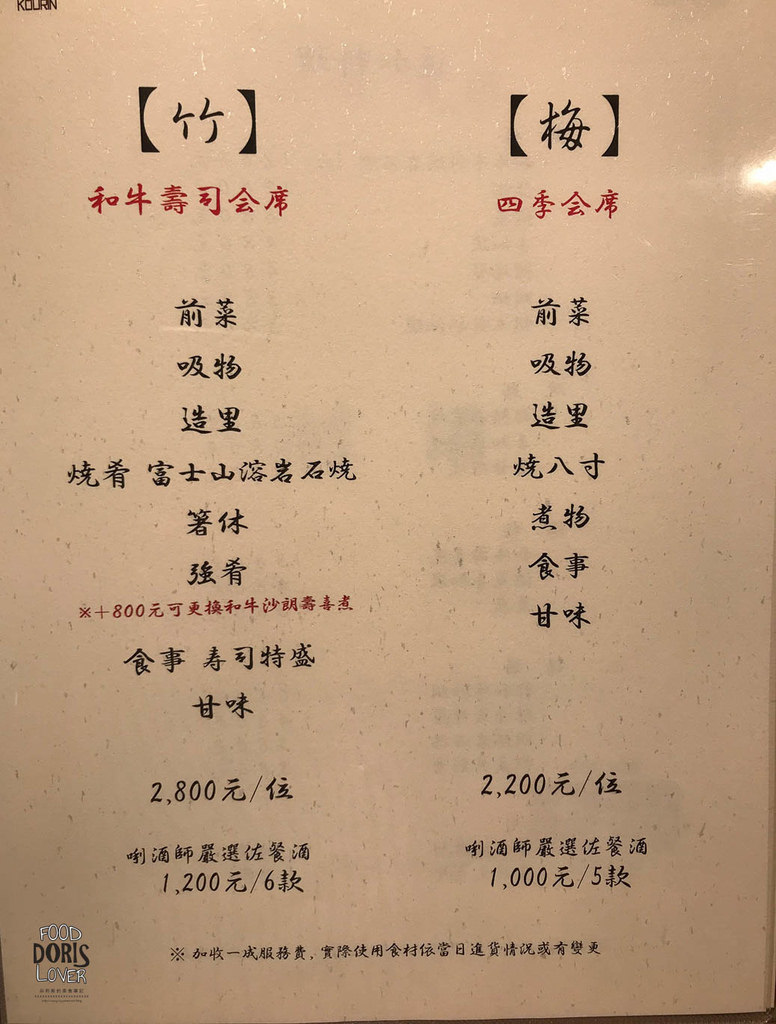 KOURIN
【竹】
和牛壽司会席
前菜
吸物
造里
焼肴 富士山溶岩石焼
箸休
強肴
※＋800元可更換和牛沙朗壽喜煮
食事 寿司特盛
甘味
2,800元/位
唎酒師嚴選佐餐酒
1,200元/6款
【梅】
四季会席
前菜
吸物
造里
焼八寸
煮物
食事
甘味
2,200元/位
唎酒師嚴選佐餐酒
1,000元/5款
※ 加收一成服務費, 實際使用食材依當日進貨情況或有變更
FOOD
DORIS
LOVER